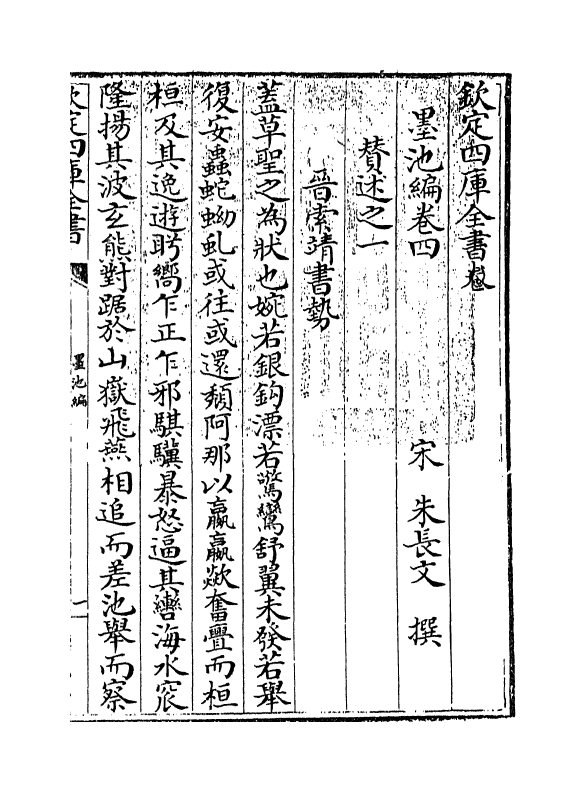 欽定四庫全書
墨池編卷四
宋 朱長文 撰
賛述之一
晉索靖書勢
蓋草聖之為狀也婉若銀鈎漂若驚鸞舒翼未發若舉
復安蟲蛇蚴虬或往或還頽阿那以羸羸歘奮舋而桓
桓及其逸遊盻嚮乍正乍邪騏驥暴怒逼其轡海水窊
隆揚其波玄熊對踞於山嶽飛燕相追而差池舉而察
欽定四庫全書
墨池編
一